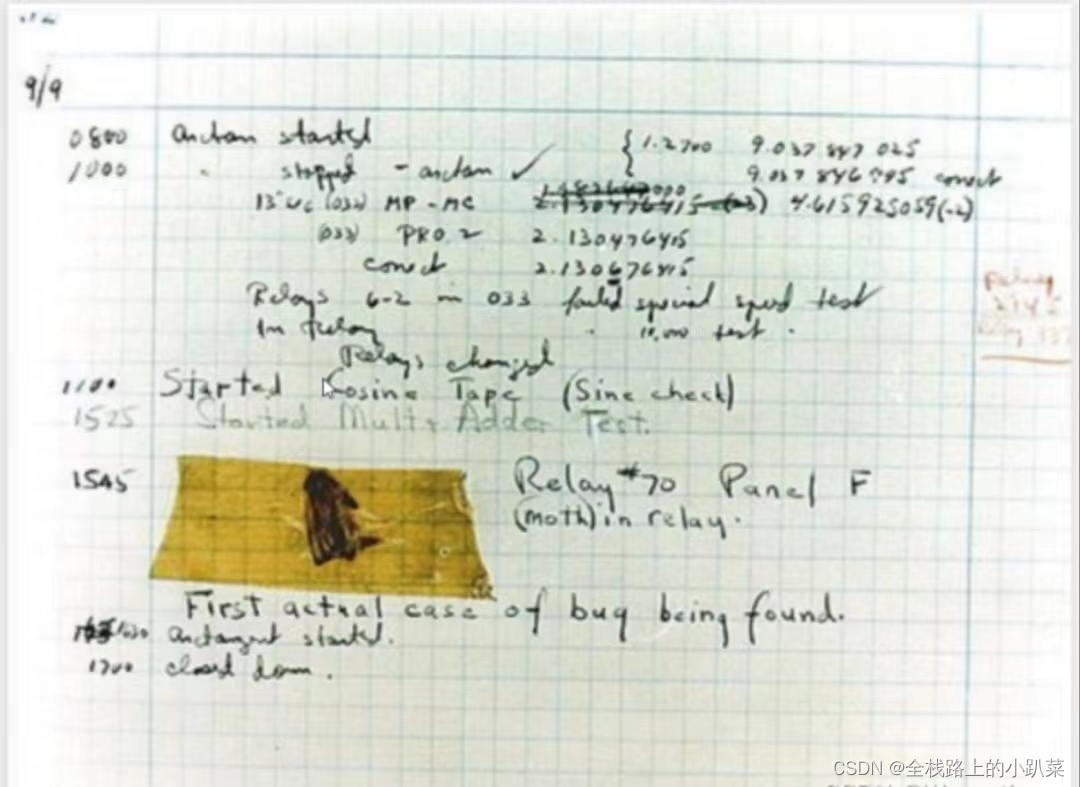 9/9
0800 arctan started
1000 " stopped - arctan ✓ { 1.2700 9.037 847 025
9.037 846 995 correct
(032) MP - MC 2.130476415 4.615925059(-2)
(033) PRO 2 2.130476415
correct 2.130676415
Relays 6-2 in 033 failed special speed test
In Relay " 10.000 test .
Relay
2145
Relay 337
Relays changed
1100 Started Cosine Tape (Sine check)
1525 Started Mult+ Adder Test.
1545 Relay #70 Panel F
(moth) in relay.
First actual case of bug being found.
1630 arctangent started.
1700 closed down.
CSDN @全栈路上的小趴菜